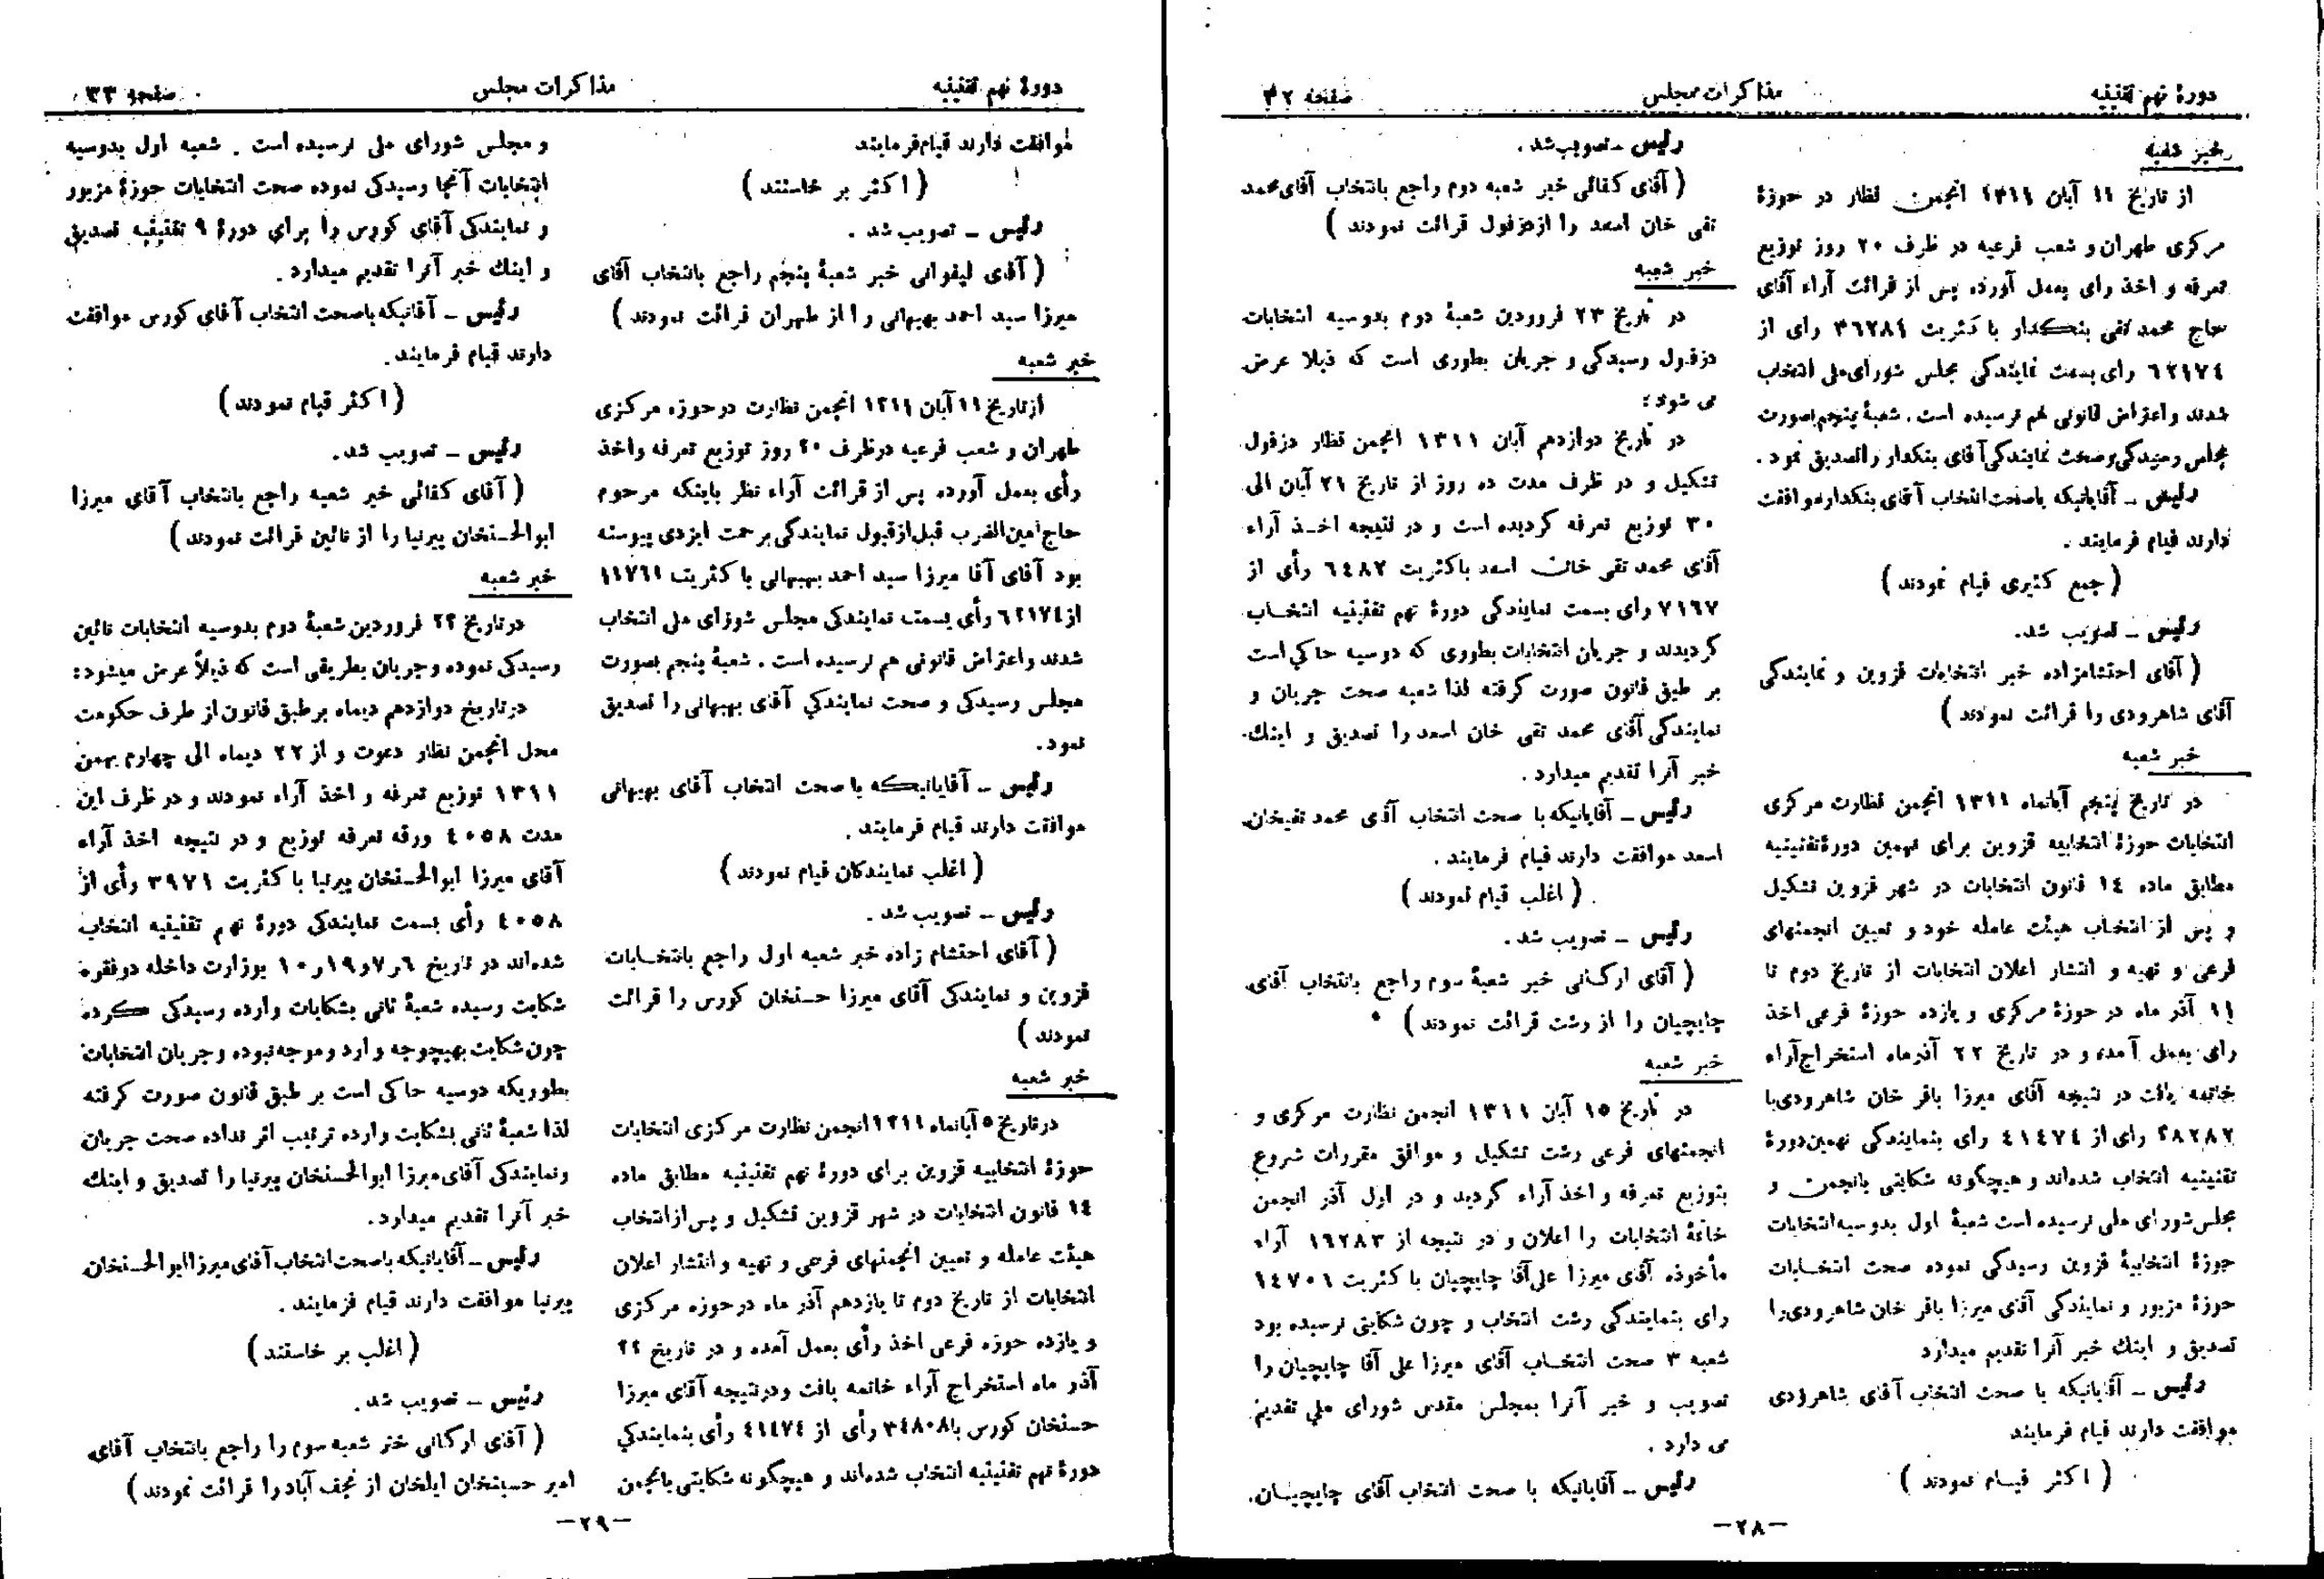 دورهٔ نهم تقنینیه
مذاکرات مجلس
صفحه ۳۲
خبر شعبه
از تاریخ ۱۱ آبان ۱۳۱۱ انجمن نظار در حوزهٔ
مرکزی طهران و شعب فرعیه در ظرف ۲۰ روز توزیع
تعرفه و اخذ رای بعمل آورده پس از قرائت آراء آقای
حاج محمد تقی بنکدار با کثریت ۳۶۲۸۹ رای از
۶۲۱۷۴ رای بسمت نمایندگی مجلس شورای ملی انتخاب
شدند و اعتراض قانونی هم نرسیده است . شعبهٔ پنجم بصورت
مجلس رسیدگی و صحت نمایندگی آقای بنکدار را تصدیق نمود .
رئیس ـ آقایانیکه با صحت انتخاب آقای بنکدار موافقت
دارند قیام فرمایند .
( جمع کثیری قیام نمودند )
رئیس ـ تصویب شد.
( آقای احتشامزاده خبر انتخابات قزوین و نمایندگی
آقای شاهرودی را قرائت نمودند )
خبر شعبه
در تاریخ پنجم آبانماه ۱۳۱۱ انجمن نظارت مرکزی
انتخابات حوزهٔ انتخابیه قزوین برای نهمین دورهٔ تقنینیه
مطابق ماده ۱٤ قانون انتخابات در شهر قزوین تشکیل
و پس از انتخاب هیئت عامله خود و تعیین انجمنهای
فرعی و تهیه و انتشار اعلان انتخابات از تاریخ دوم تا
۱۱ آذر ماه در حوزهٔ مرکزی و یازده حوزهٔ فرعی اخذ
رای بعمل آمده و در تاریخ ۲۲ آذرماه استخراج آراء
خاتمه یافت در نتیجه آقای میرزا باقر خان شاهرودی با
۲۸۲۸۲ رای از ٤۱٤۷٤ رای بنمایندگی نهمین دورهٔ
تقنینیه انتخاب شده‌اند و هیچگونه شکایتی بانجمن و
مجلس شورای ملی نرسیده است شعبهٔ اول بدوسیه انتخابات
حوزهٔ انتخابیهٔ قزوین رسیدگی نموده صحت انتخابات
حوزهٔ مزبور و نمایندگی آقای میرزا باقر خان شاهرودی را
تصدیق و اینك خبر آنرا تقدیم میدارد
رئیس ـ آقایانیکه با صحت انتخاب آقای شاهرودی
موافقت دارند قیام فرمایند
( اکثر قیام نمودند )
رئیس ـ تصویب شد .
( آقای کفائی خبر شعبه دوم راجع بانتخاب آقای محمد
تقی خان اسعد را از دزفول قرائت نمودند )
خبر شعبه
در تاریخ ۲۳ فروردین شعبهٔ دوم بدوسیه انتخابات
دزفول رسیدگی و جریان بطوری است که ذیلا عرض
می شود :
در تاریخ دوازدهم آبان ۱۳۱۱ انجمن نظار دزفول
تشکیل و در ظرف مدت ده روز از تاریخ ۲۱ آبان الی
۳۰ توزیع تعرفه گردیده است و در نتیجه اخذ آراء
آقای محمد تقی خان اسعد باکثریت ٦٤۸۲ رأی از
۷۱٦۷ رای بسمت نمایندگی دورهٔ نهم تقنینیه انتخاب
گردیدند و جریان انتخابات بطوری که دوسیه حاکی است
بر طبق قانون صورت گرفته لذا شعبه صحت جریان و
نمایندگی آقای محمد تقی خان اسعد را تصدیق و اینك
خبر آنرا تقدیم میدارد .
رئیس ـ آقایانیکه با صحت انتخاب آقای محمد تقیخان
اسعد موافقت دارند قیام فرمایند .
( اغلب قیام نمودند )
رئیس ـ تصویب شد .
( آقای ارکانی خبر شعبهٔ سوم راجع بانتخاب آقای
چایچیان را از رشت قرائت نمودند )
خبر شعبه
در تاریخ ۱۵ آبان ۱۳۱۱ انجمن نظارت مرکزی و
انجمنهای فرعی رشت تشکیل و موافق مقررات شروع
بتوزیع تعرفه و اخذ آراء گردید و در اول آذر انجمن
خاتمهٔ انتخابات را اعلان و در نتیجه از ۱۹۲۸۳ آراء
مأخوذه آقای میرزا علی‌آقا چایچیان با کثریت ۱٤۷۰۱
رای بنمایندگی رشت انتخاب و چون شکایتی نرسیده بود
شعبه ۳ صحت انتخاب آقای میرزا علی آقا چایچیان را
تصویب و خبر آنرا بمجلس مقدس شورای ملی تقدیم
می دارد .
رئیس ـ آقایانیکه با صحت انتخاب آقای چایچیان
ـ۲۸ـ
دورهٔ نهم تقنینیه
مذاکرات مجلس
صفحه ۳۳
موافقت دارند قیام فرمایند
( اکثر بر خاستند )
رئیس ـ تصویب شد .
( آقای لیقوانی خبر شعبهٔ پنجم راجع بانتخاب آقای
میرزا سید احمد بهبهانی را از طهران قرائت نمودند )
خبر شعبه
از تاریخ ۱۱ آبان ۱۳۱۱ انجمن نظارت در حوزه مرکزی
طهران و شعب فرعیه در ظرف ۲۰ روز توزیع تعرفه و اخذ
رأی بعمل آورده پس از قرائت آراء نظر باینکه مرحوم
حاج امین‌الضرب قبل از قبول نمایندگی برحمت ایزدی پیوسته
بود آقای آقا میرزا سید احمد بهبهانی با کثریت ۱۱۷٦۱
از ٦۲۱۷٤ رأی بسمت نمایندگی مجلس شورای ملی انتخاب
شدند و اعتراض قانونی هم نرسیده است . شعبهٔ پنجم بصورت
مجلس رسیدگی و صحت نمایندگی آقای بهبهانی را تصدیق
نمود .
رئیس ـ آقایانیکه با صحت انتخاب آقای بهبهانی
موافقت دارند قیام فرمایند .
( اغلب نمایندگان قیام نمودند )
رئیس ـ تصویب شد .
( آقای احتشام زاده خبر شعبه اول راجع بانتخابات
قزوین و نمایندگی آقای میرزا حسنخان کورس را قرائت
نمودند )
خبر شعبه
در تاریخ ۵ آبانماه ۱۳۱۱ انجمن نظارت مرکزی انتخابات
حوزهٔ انتخابیه قزوین برای دورهٔ نهم تقنینیه مطابق ماده
۱٤ قانون انتخابات در شهر قزوین تشکیل و پس از انتخاب
هیئت عامله و تعیین انجمنهای فرعی و تهیه و انتشار اعلان
انتخابات از تاریخ دوم تا یازدهم آذر ماه در حوزه مرکزی
و یازده حوزه فرعی اخذ رأی بعمل آمده و در تاریخ ۲۲
آذر ماه استخراج آراء خاتمه یافت و در نتیجه آقای میرزا
حسنخان کورس با ۳٤۸۰۸ رأی از ٤۱٤۷٤ رأی بنمایندگی
دورهٔ نهم تقنینیه انتخاب شده‌اند و هیچگونه شکایتی بانجمن
و مجلس شورای ملی نرسیده است . شعبه اول بدوسیه
انتخابات آنجا رسیدگی نموده صحت انتخابات حوزهٔ مزبور
و نمایندگی آقای کورس را برای دورهٔ ۹ تقنینیه تصدیق
و اینك خبر آنرا تقدیم میدارد .
رئیس ـ آقانیکه باصحت انتخاب آقای کورس موافقت
دارند قیام فرمایند.
( اکثر قیام نمودند )
رئیس ـ تصویب شد.
( آقای کفائی خبر شعبه راجع بانتخاب آقای میرزا
ابوالحسنخان پیرنیا را از نائین قرائت نمودند )
خبر شعبه
در تاریخ ۲۳ فروردین شعبهٔ دوم بدوسیه انتخابات نائین
رسیدگی نموده و جریان بطریقی است که ذیلاً عرض میشود :
در تاریخ دوازدهم دیماه بر طبق قانون از طرف حکومت
محل انجمن نظار دعوت و از ۲۲ دیماه الی چهارم بهمن
۱۳۱۱ توزیع تعرفه و اخذ آراء نمودند و در ظرف این
مدت ٤۰۵۸ ورقه تعرفه توزیع و در نتیجه اخذ آراء
آقای میرزا ابوالحسنخان پیرنیا با کثریت ۳۹۷۱ رأی از
٤۰۵۸ رأی بسمت نمایندگی دورهٔ نهم تقنینیه انتخاب
شده‌اند در تاریخ ٦ر۷و۱۹ر۱۰ بوزارت داخله دوفقره
شکایت رسیده شعبهٔ ثانی بشکایات وارده رسیدگی کرده
چون شکایت بهیچوجه وارد و موجه نبوده و جریان انتخابات
بطوریکه دوسیه حاکی است بر طبق قانون صورت گرفته
لذا شعبهٔ ثانی بشکایت وارده ترتیب اثر نداده صحت جریان
و نمایندگی آقای میرزا ابوالحسنخان پیرنیا را تصدیق و اینك
خبر آنرا تقدیم میدارد.
رئیس ـ آقایانیکه باصحت انتخاب آقای میرزا ابوالحسنخان
پیرنیا موافقت دارند قیام فرمایند .
( اغلب بر خاستند )
رئیس ـ تصویب شد.
( آقای ارکانی خبر شعبه سوم را راجع بانتخاب آقای
امیر حسینخان ایلخان از نجف آباد را قرائت نمودند )
ـ۲۹ـ